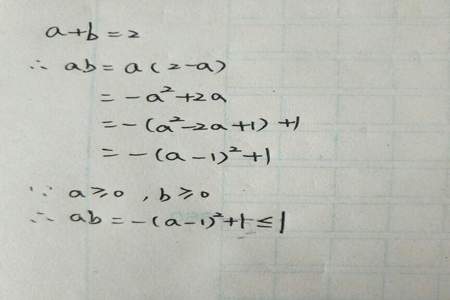 a+b=2
∴ ab=a(2-a)
=-a²+2a
=-(a²-2a+1)+1
=-(a-1)²+1
∵ a≥0, b≥0
∴ ab=-(a-1)²+1≤1